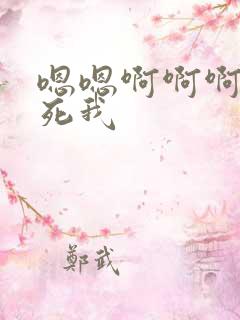 嗯嗯啊啊啊
死我
郑武